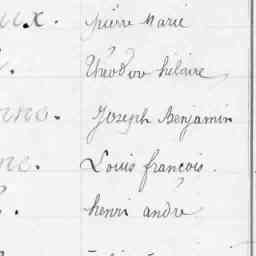 ux. pierre Marie
Théodor hilaire
nne. Joseph Benjamin
ne. Louis françois.
henri andré